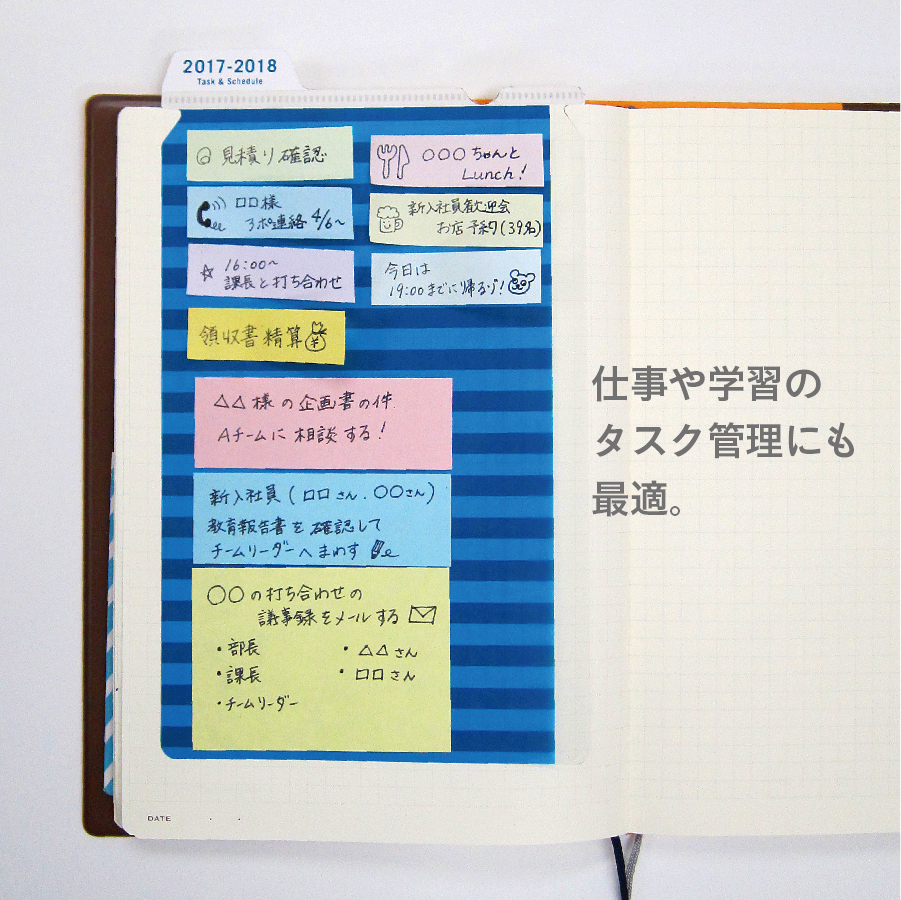 2017-2018
Task & Schedule
見積り確認
○○○ちゃんと
Lunch!
□□様
アポ連絡 4/6〜
新入社員歓迎会
お店予約(39名)
16:00〜
課長と打ち合わせ
今日は
19:00までに帰るゾ!
領収書精算
¥
△△様の企画書の件
Aチームに相談する!
仕事や学習の
タスク管理にも
最適。
新入社員(□□さん.○○さん)
教育報告書を確認して
チームリーダーへまわす
○○の打ち合わせの
議事録をメールする
・部長
・△△さん
・課長
・□□さん
・チームリーダー
DATE . .